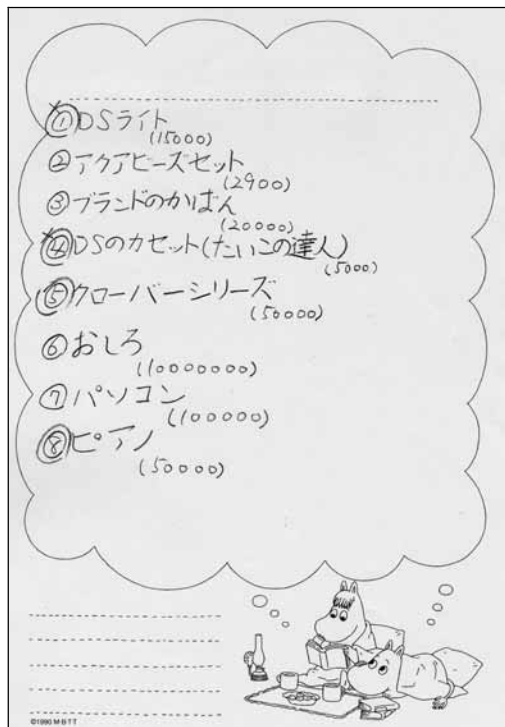 ①DSライト
(15000)
②アクアビーズセット
(2900)
③ブランドのかばん
(20000)
④DSのカセット(たいこの達人)
(5000)
⑤クローバーシリーズ
(50000)
⑥おしろ
(10000000)
⑦パソコン
(100000)
⑧ピアノ
(50000)
©1990 M·B·T T